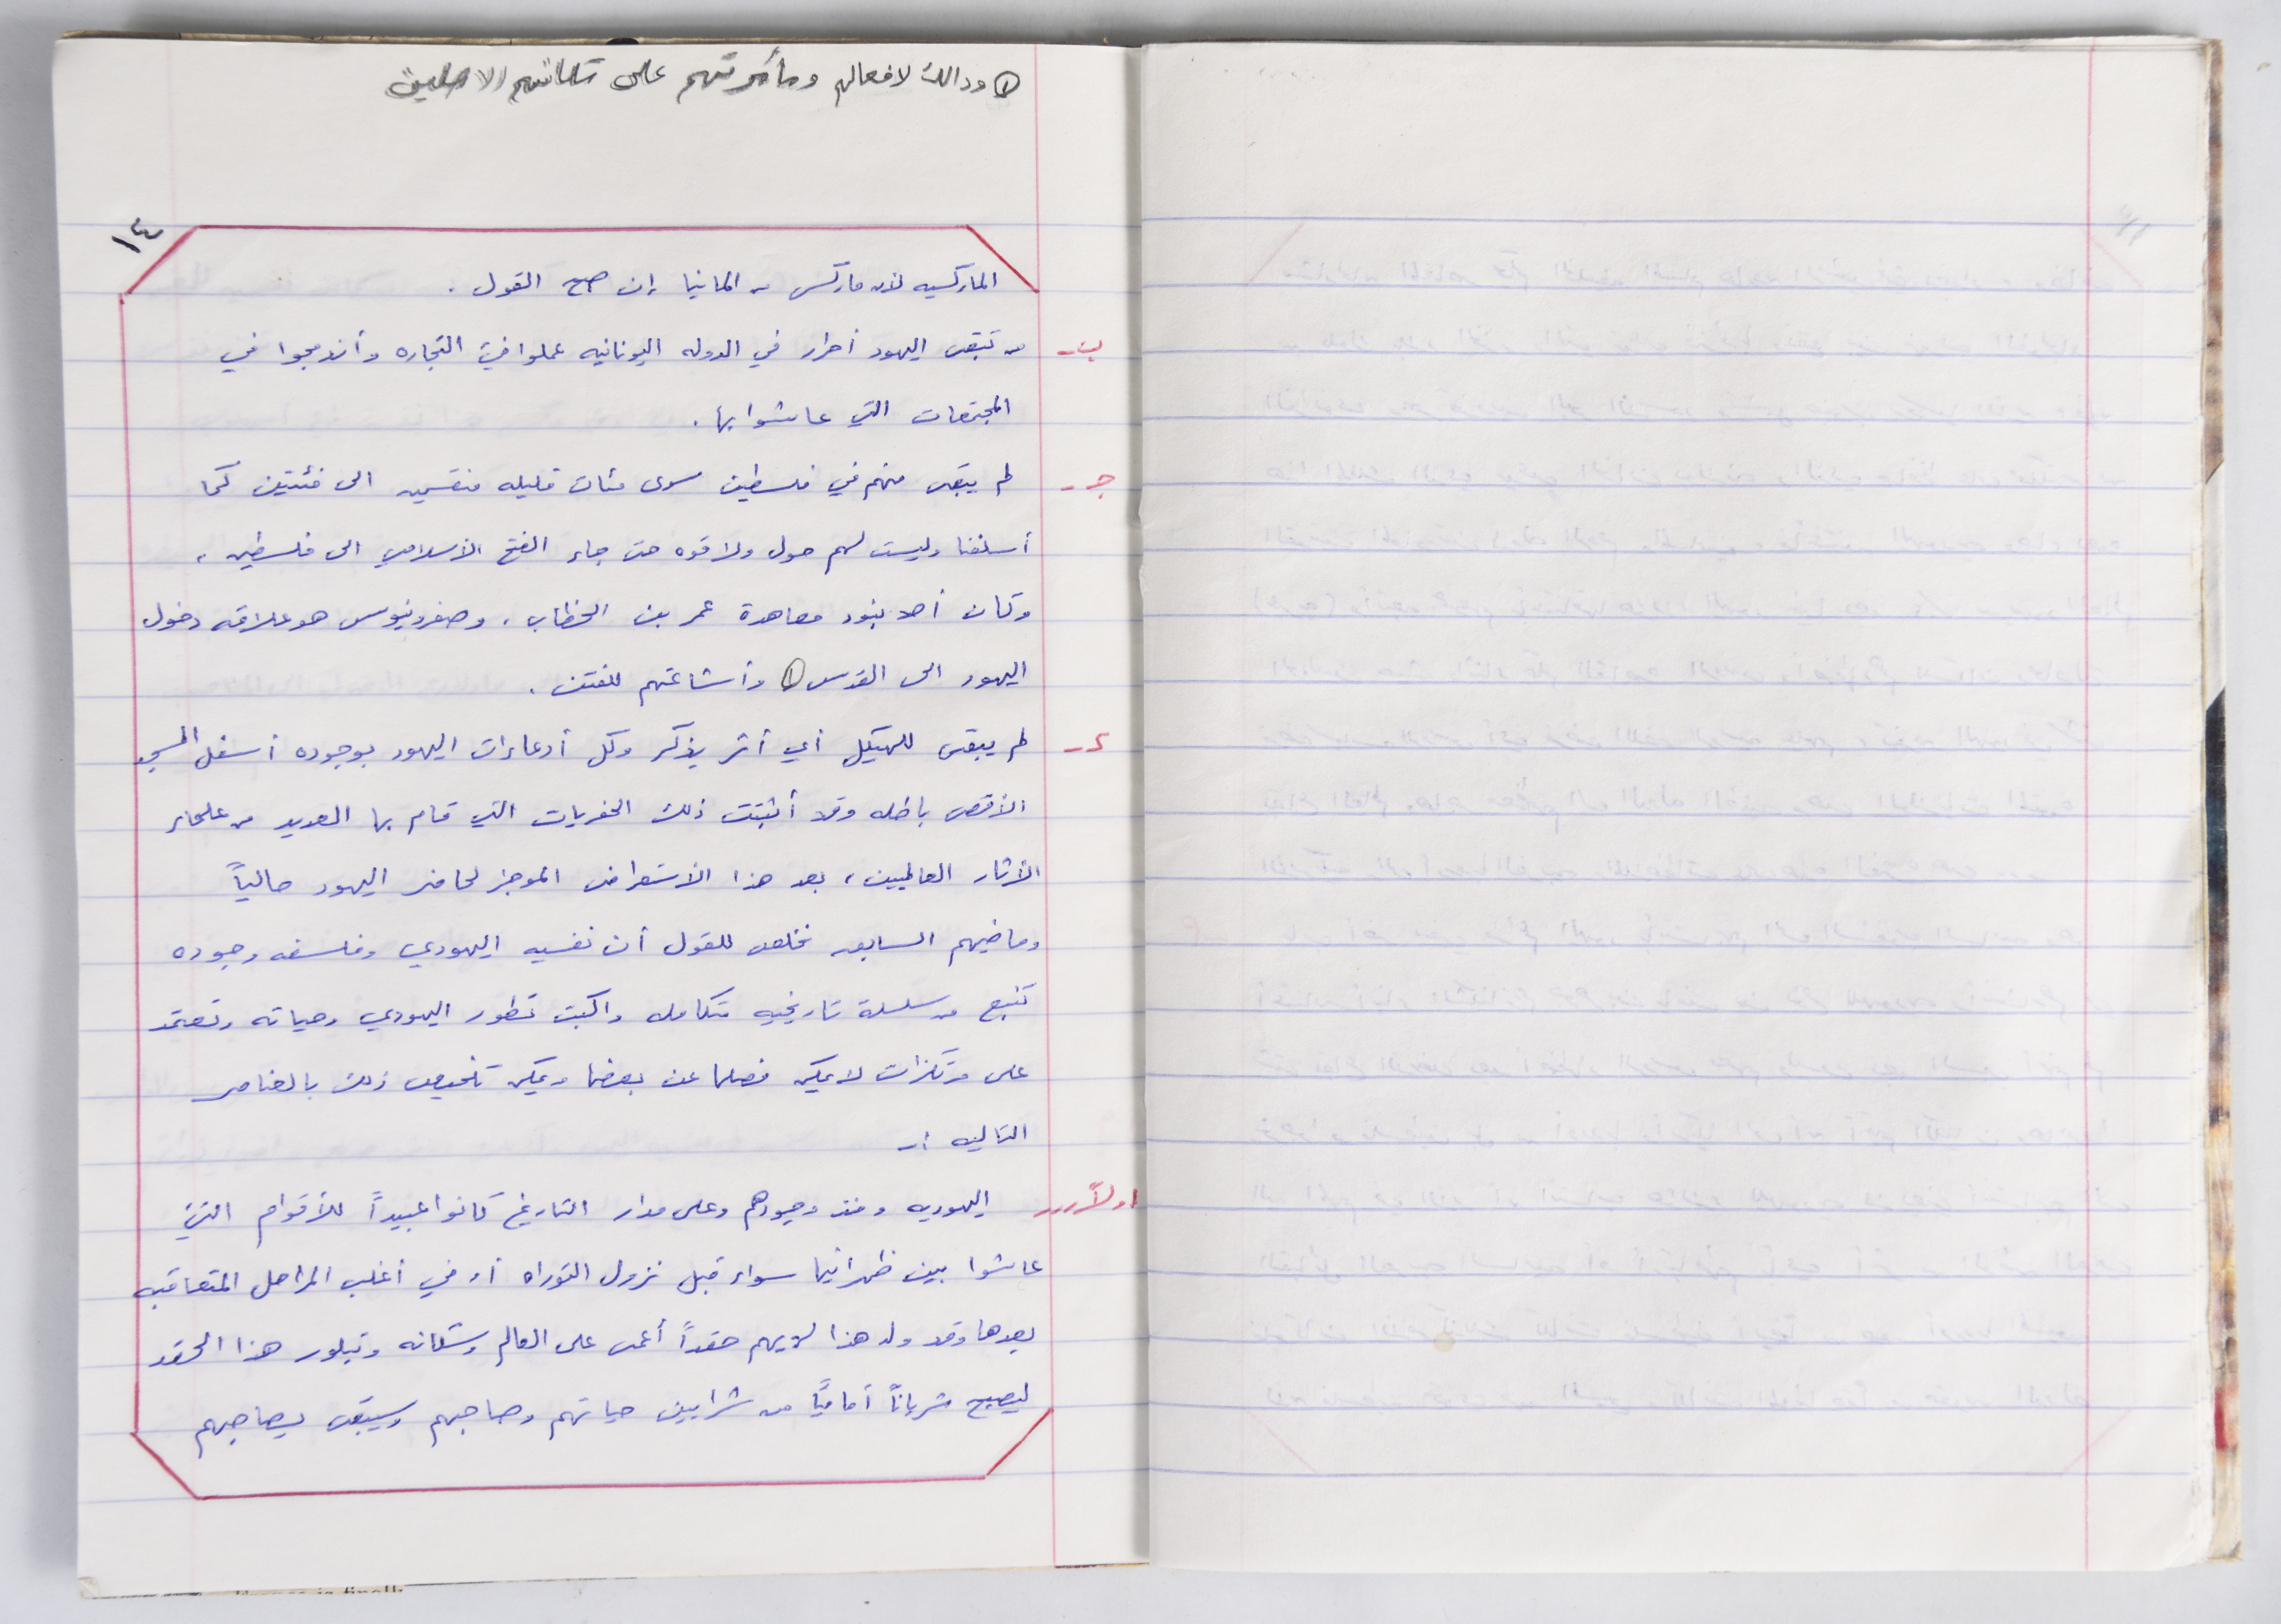 ① وذالك لافعالهم ومأمرتهم على سكانهم الاصليين
١٤
الماركسيه لأن ماركس من المانيا إن صح القول .
ب - من تبقى اليهود أحرار في الدوله اليونانيه عملوا في التجاره وأندمجوا في
المجتمعات التي عاشوا بها .
جـ - لم يبقى منهم في فلسطين سوى مئات قليله منقسمين الى فئتين كما
أسلفنا وليست لهم حول ولا قوه حتى جاء الفتح الأسلامي الى فلسطين ،
وكان أحد بنود معاهدة عمر بن الخطاب ، وصفرونيوس هو علاقة دخول
اليهود الى القدس ① وأشاعتهم للفتن .
د - لم يبقى للهيكل أي أثر يذكر وكل أدعاءات اليهود بوجوده أسفل المسجد
الأقصى باطله وقد أثبتت ذلك الحفريات التي قام بها العديد من علماء
الأثار العالميين ، بعد هذا الأستعراض الموجز لحاضر اليهود حالياً
وماضيهم السابق نخلص للقول أن نفسيه اليهودي وفلسفه وجوده
تنبع من سلسلة تاريخيه متكامله واكبت تطور اليهودي وحياته وتعتمد
على مرتكزات لا يمكن فصلها عن بعضها ويمكن تلخيص ذلك بالعناصر
التاليه :-
اولاً - اليهوديه ومنذ وجودهم وعلى مدار التاريخ كانوا عبيداً للأقوام التي
عاشوا بين ظهرانيها سواء قبل نزول التوراه أو في أغلب المراحل المتعاقبه
بعدها وقد ولد هذا لديهم حقداً أعمى على العالم وسكانه وتبلور هذا الحقد
ليصبح شرياناً أمامياً من شرايين حياتهم وصاحبهم وسيبقى يصاحبهم